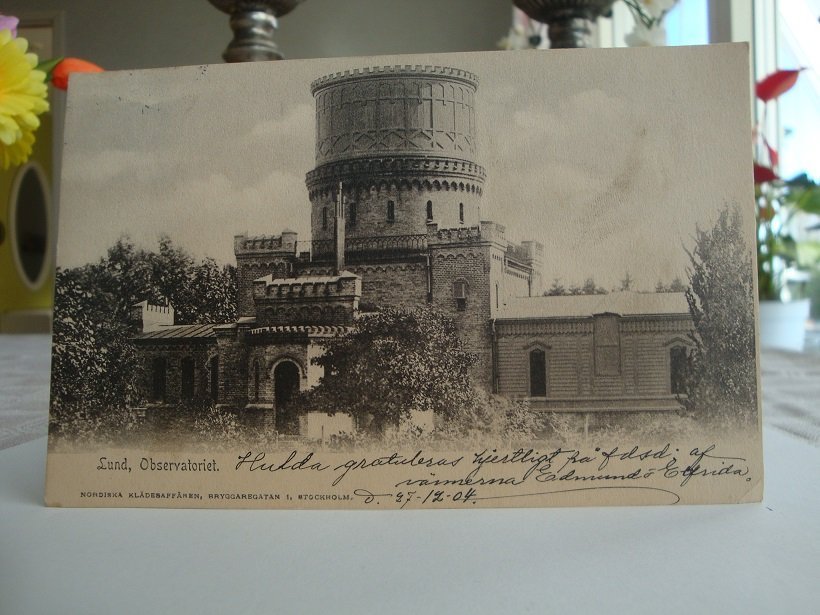 Lund, Observatoriet.
Hulda gratuleras hjertligt på f.d.s.d. af
vännerna Edmund o Elfrida.
NORDISKA KLÄDESAFFÄREN, BRYGGAREGATAN 1, STOCKHOLM.
D. 27-12-04.